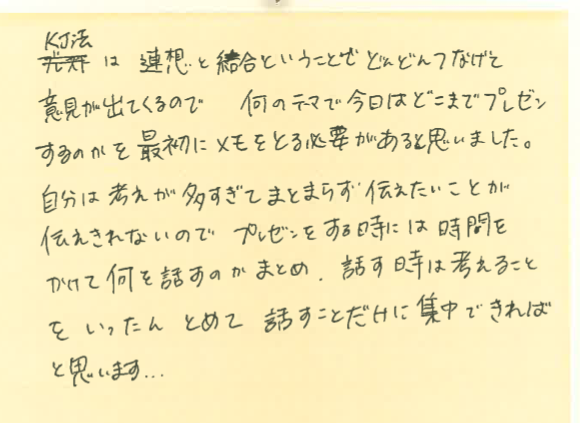 KJ法
は 連想と結合ということで どんどんつなげて
意見が出てくるので 何のテーマで今日はどこまでプレゼン
するのかを 最初にメモをとる必要があると思いました。
自分は考えが多すぎてまとまらず 伝えたいことが
伝えきれないので プレゼンをする時には 時間を
かけて何を話すのかまとめ、話す時は考えること
をいったん とめて 話すことだけに集中できれば
と思います...